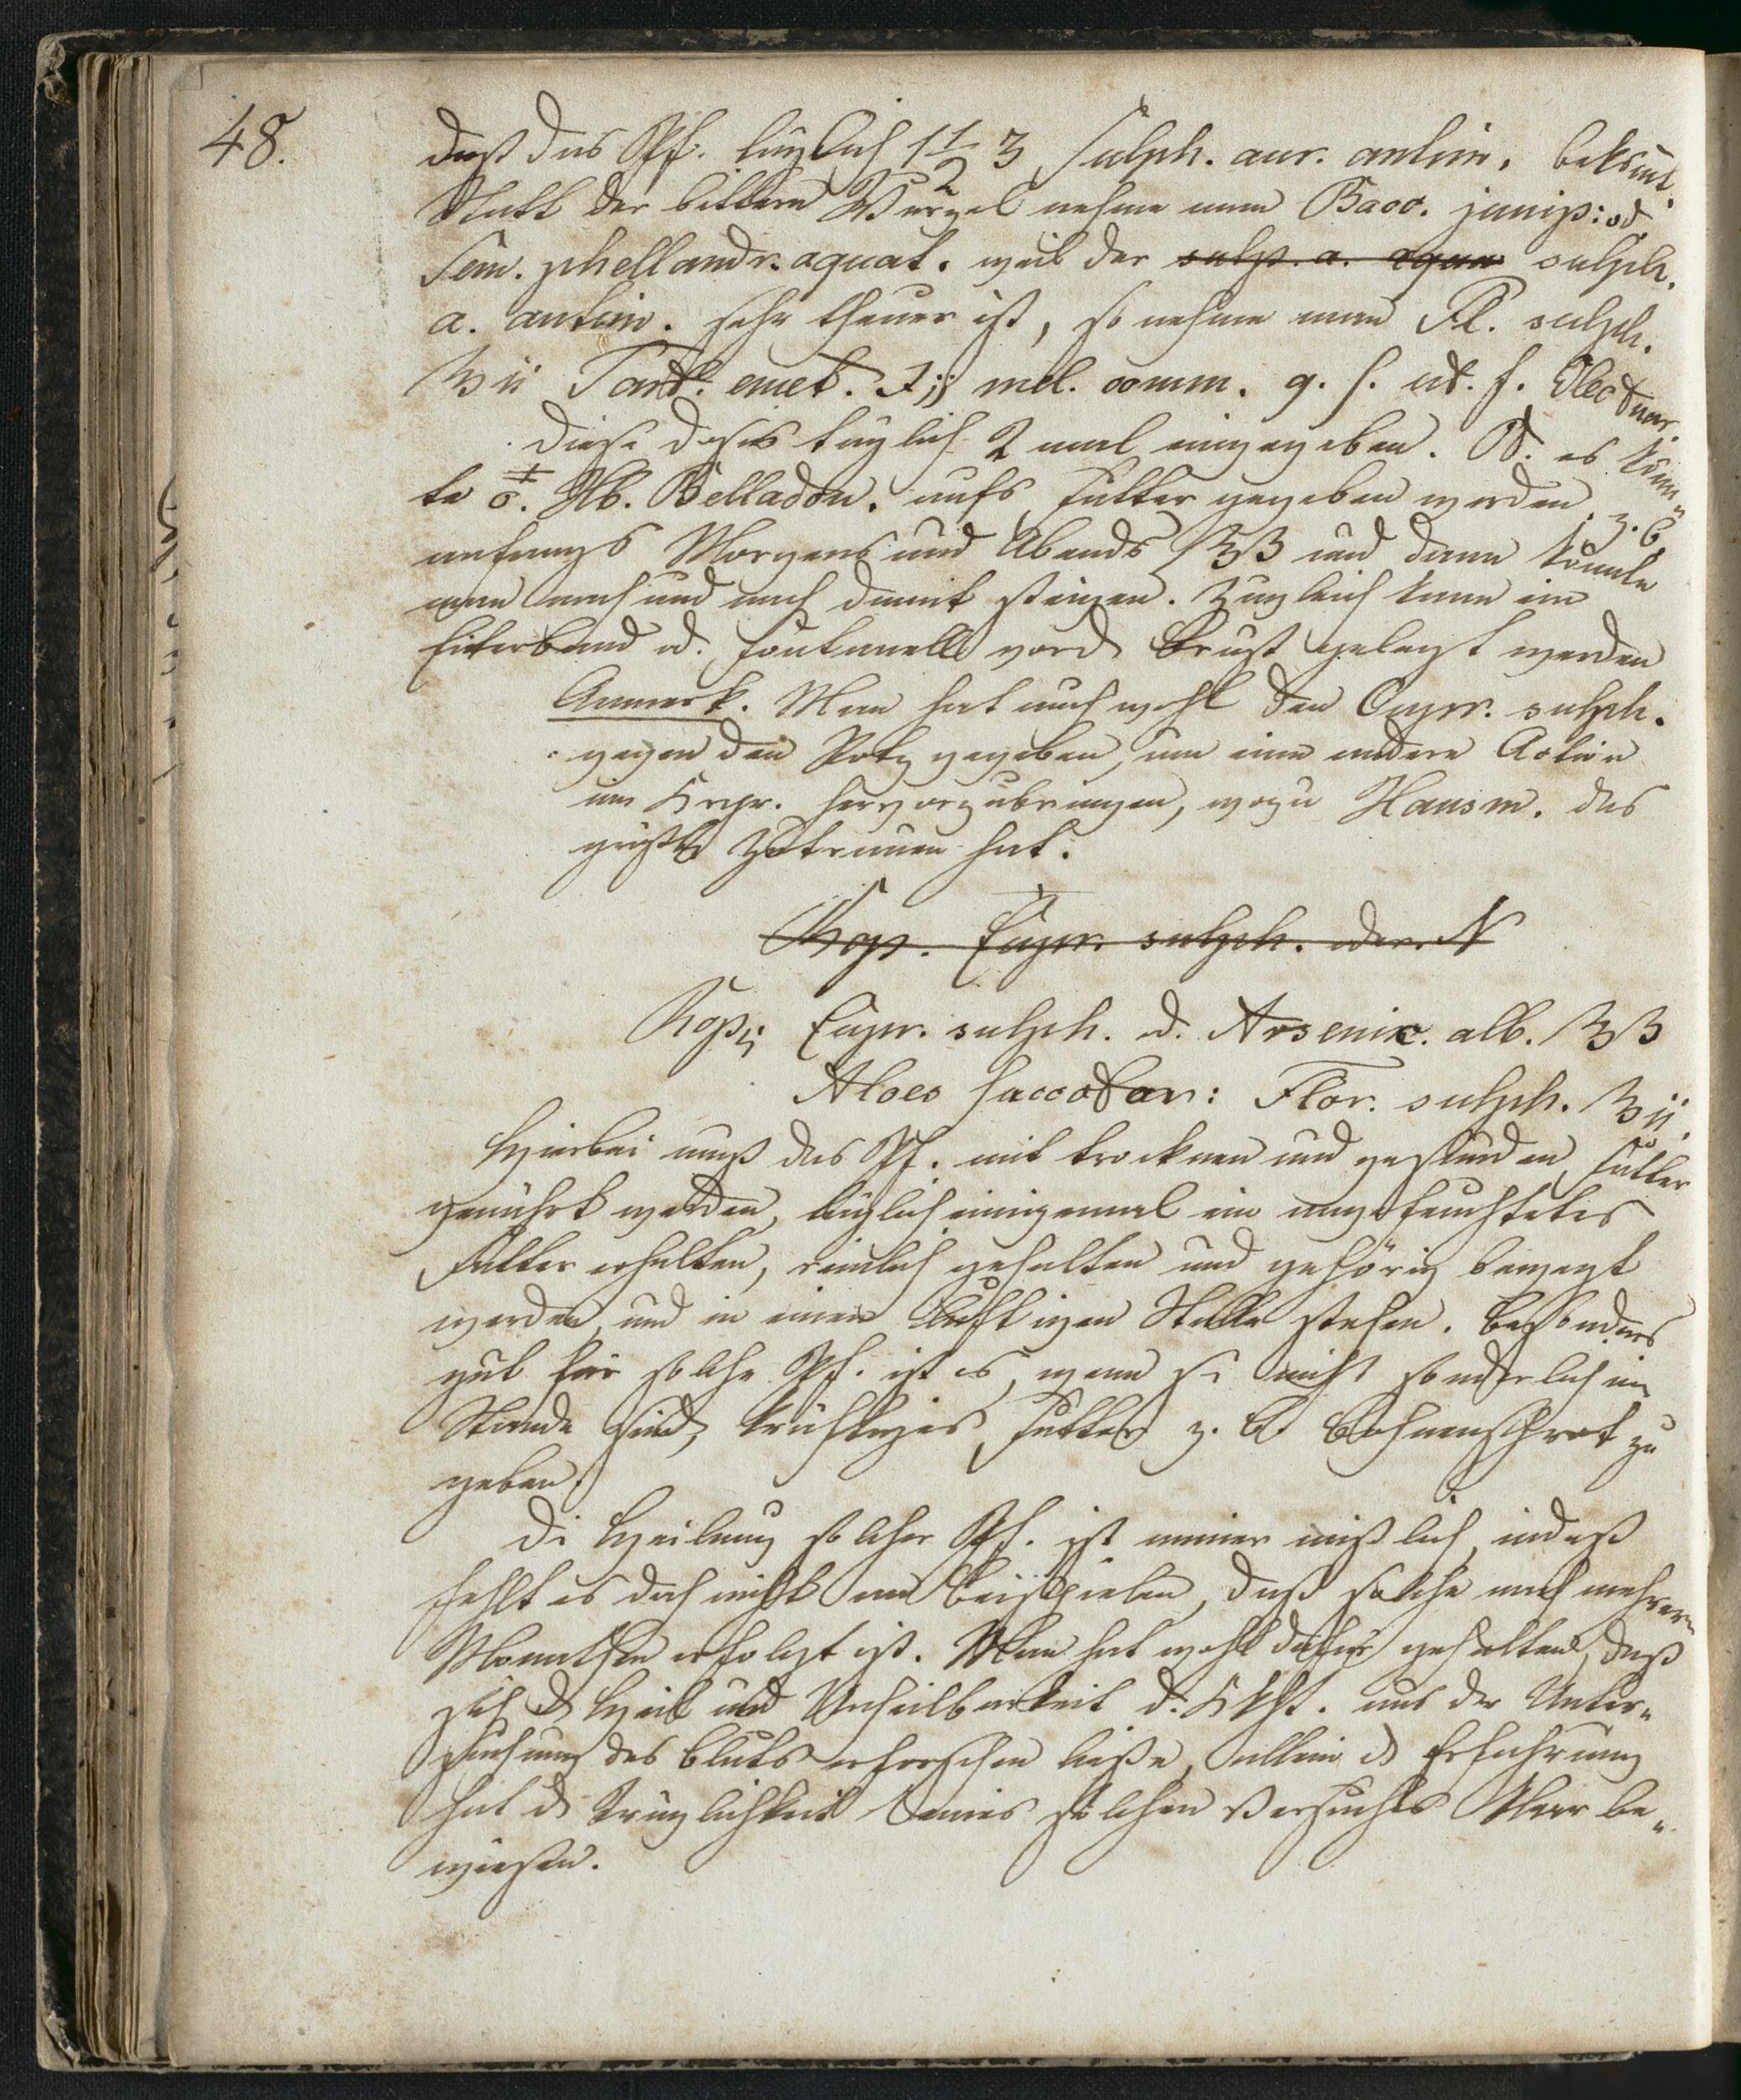 48.
daß das Pf. täglich 1 1/2 ʒ Sulph. aur. antim. bekömt.
Statt der bittern Wurzel nehme man Bacc. junip: od.
Sem. phellandr. aquat. weil der sulp. a. aqua sulph.
a. antim. sehr theuer ist, so nehme man Fl. sulph.
ʒii Tart. emet. ʒii mel. comm. q. s. ut. f. Electuar.
diese dosis täglich 2 mal eingegeben. Od. es könn¬
te Hb. Belladon. aufs Futter gegeben werden z. b.
anfangs Morgens und Abends ʒß und dann könnte
man nach und nach damit steigen. Zugleich kann ein
Eiterband od. Fontanell vor d Brust gelegt werden
Anmerk. Man hat auch wohl den Cupr. sulph.
gegen den Rotz gegeben, um eine andere Action
im Krpr. hervorzubringen, wozu Hausm. das
größte Zutrauen hat.
Rcp. Cupr. sulph. oder N
Rcp; Cupr. sulph. d. Arsenic. alb. ʒß
Aloes succotar: Flor. sulph. ʒii.
Hierbei muß das Pf. mit trocknen und gesunden Futter
genährt werden, täglich einigemal ein angefeuchtetes
Futter erhalten, reinlich gehalten und gehörig bewegt
werden, und in einen luftigen Stalle stehen. besonders
gut für solche Pf. ist es, wenn sie nicht sonderlich im
Stande sind, kräftiges Futter z. B. Bohnenschrot zu
geben.
Di Heilung solcher Pf. ist immer mißlich, indeß
fehlt es doch nicht an Beispielen, daß solche nach mehrern
Monathen erfolgt ist. Man hat wohl dafür gehalten, daß
sich d Heil und Unheilbarkeit d. Kkht. aus der Unter¬
suchung des Bluts erforschen ließe, allein d Erfahrung
hat d Trüglichkeit eines solchen Versuchs klar be¬
wiesen.